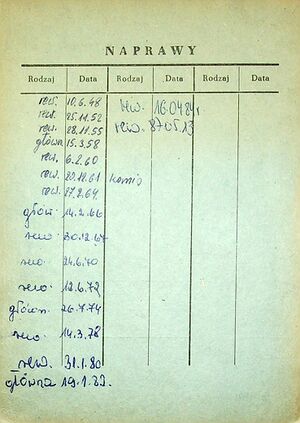 NAPRAWY
Rodzaj Data Rodzaj Data Rodzaj Data
rew. 10.6.48 rew. 16.04.84r.
rew. 25.11.52 rew. 87.05.13
rew. 28.11.55
główna 15.3.58
rew. 6.2.60
rew. 20.12.61 komis
rew. 27.2.64
głów. 14.2.66
rew. 30.12.67
rew. 24.6.70
rew. 12.6.72
główn. 26.7.74
rew. 14.3.78
rew. 31.1.80
główna 19.1.83.